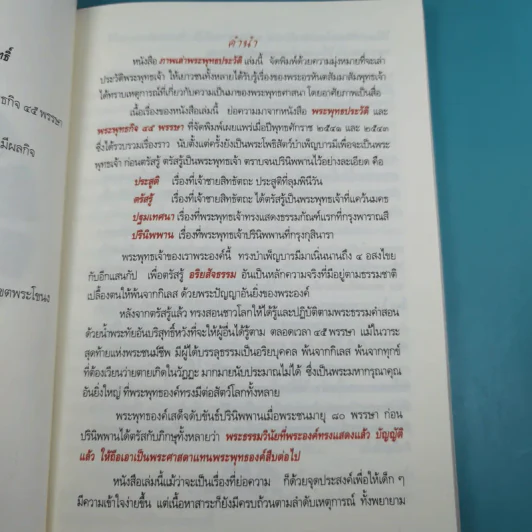 ทธิ์
ธกิจ ๔๕ พรรษา
มีผลกิจ
ขตพระโขนง
คำนำ
หนังสือ ภาพเล่าพระพุทธประวัติ เล่มนี้ จัดพิมพ์ด้วยความมุ่งหมายที่จะเล่า
ประวัติพระพุทธเจ้า ให้เยาวชนทั้งหลายได้รับรู้เรื่องของพระอรหันตสัมมาสัมพุทธเจ้า
ได้ทราบเหตุการณ์ที่เกี่ยวกับความเป็นมาของพระพุทธศาสนา โดยอาศัยภาพเป็นสื่อ
เนื้อเรื่องของหนังสือเล่มนี้ ย่อความมาจากหนังสือ พระพุทธประวัติ และ
พระพุทธกิจ ๔๕ พรรษา ที่จัดพิมพ์เผยแพร่เมื่อปีพุทธศักราช ๒๕๔๑ และ ๒๕๔๓
ซึ่งได้รวบรวมเรื่องราว นับตั้งแต่ครั้งยังเป็นพระโพธิสัตว์บำเพ็ญบารมีเพื่อจะเป็นพระ
พุทธเจ้า ก่อนตรัสรู้ ตรัสรู้เป็นพระพุทธเจ้า ตราบจนปรินิพพานไว้อย่างละเอียด คือ
ประสูติ เรื่องที่เจ้าชายสิทธัตถะ ประสูติที่ลุมพินีวัน
ตรัสรู้ เรื่องที่เจ้าชายสิทธัตถะ ได้ตรัสรู้เป็นพระพุทธเจ้าที่แคว้นมคธ
ปฐมเทศนา เรื่องที่พระพุทธเจ้าทรงแสดงธรรมกัณฑ์แรกที่กรุงพาราณสี
ปรินิพพาน เรื่องที่พระพุทธเจ้าปรินิพพานที่กรุงกุสินารา
พระพุทธเจ้าของเราพระองค์นี้ ทรงบำเพ็ญบารมีมาเนิ่นนานถึง ๔ อสงไขย
กับอีกแสนกัป เพื่อตรัสรู้ อริยสัจธรรม อันเป็นหลักความจริงที่มีอยู่ตามธรรมชาติ
เปลื้องตนให้พ้นจากกิเลส ด้วยพระปัญญาอันยิ่งของพระองค์
หลังจากตรัสรู้แล้ว ทรงสอนชาวโลกให้ได้รู้และปฏิบัติตามพระธรรมคำสอน
ด้วยน้ำพระทัยอันบริสุทธิ์หวังที่จะให้ผู้อื่นได้รู้ตาม ตลอดเวลา ๔๕ พรรษา แม้ในวาระ
สุดท้ายแห่งพระชนม์ชีพ มีผู้ได้บรรลุธรรมเป็นอริยบุคคล พ้นจากกิเลส พ้นจากทุกข์
ที่ต้องเวียนว่ายตายเกิดในวัฏฏะ มากมายนับประมาณไม่ได้ ซึ่งเป็นพระมหากรุณาคุณ
อันยิ่งใหญ่ ที่พระพุทธองค์ทรงมีต่อสัตว์โลกทั้งหลาย
พระพุทธองค์เสด็จดับขันธ์ปรินิพพานเมื่อพระชนมายุ ๘๐ พรรษา ก่อน
ปรินิพพานได้ตรัสกับภิกษุทั้งหลายว่า พระธรรมวินัยที่พระองค์ทรงแสดงแล้ว บัญญัติ
แล้ว ให้ถือเอาเป็นพระศาสดาแทนพระพุทธองค์สืบต่อไป
หนังสือเล่มนี้แม้ว่าจะเป็นเรื่องที่ย่อความ ก็ด้วยจุดประสงค์เพื่อให้เด็ก ๆ
มีความเข้าใจง่ายขึ้น แต่เนื้อหาสาระก็ยังมีครบถ้วนตามลำดับเหตุการณ์ ทั้งพยายาม